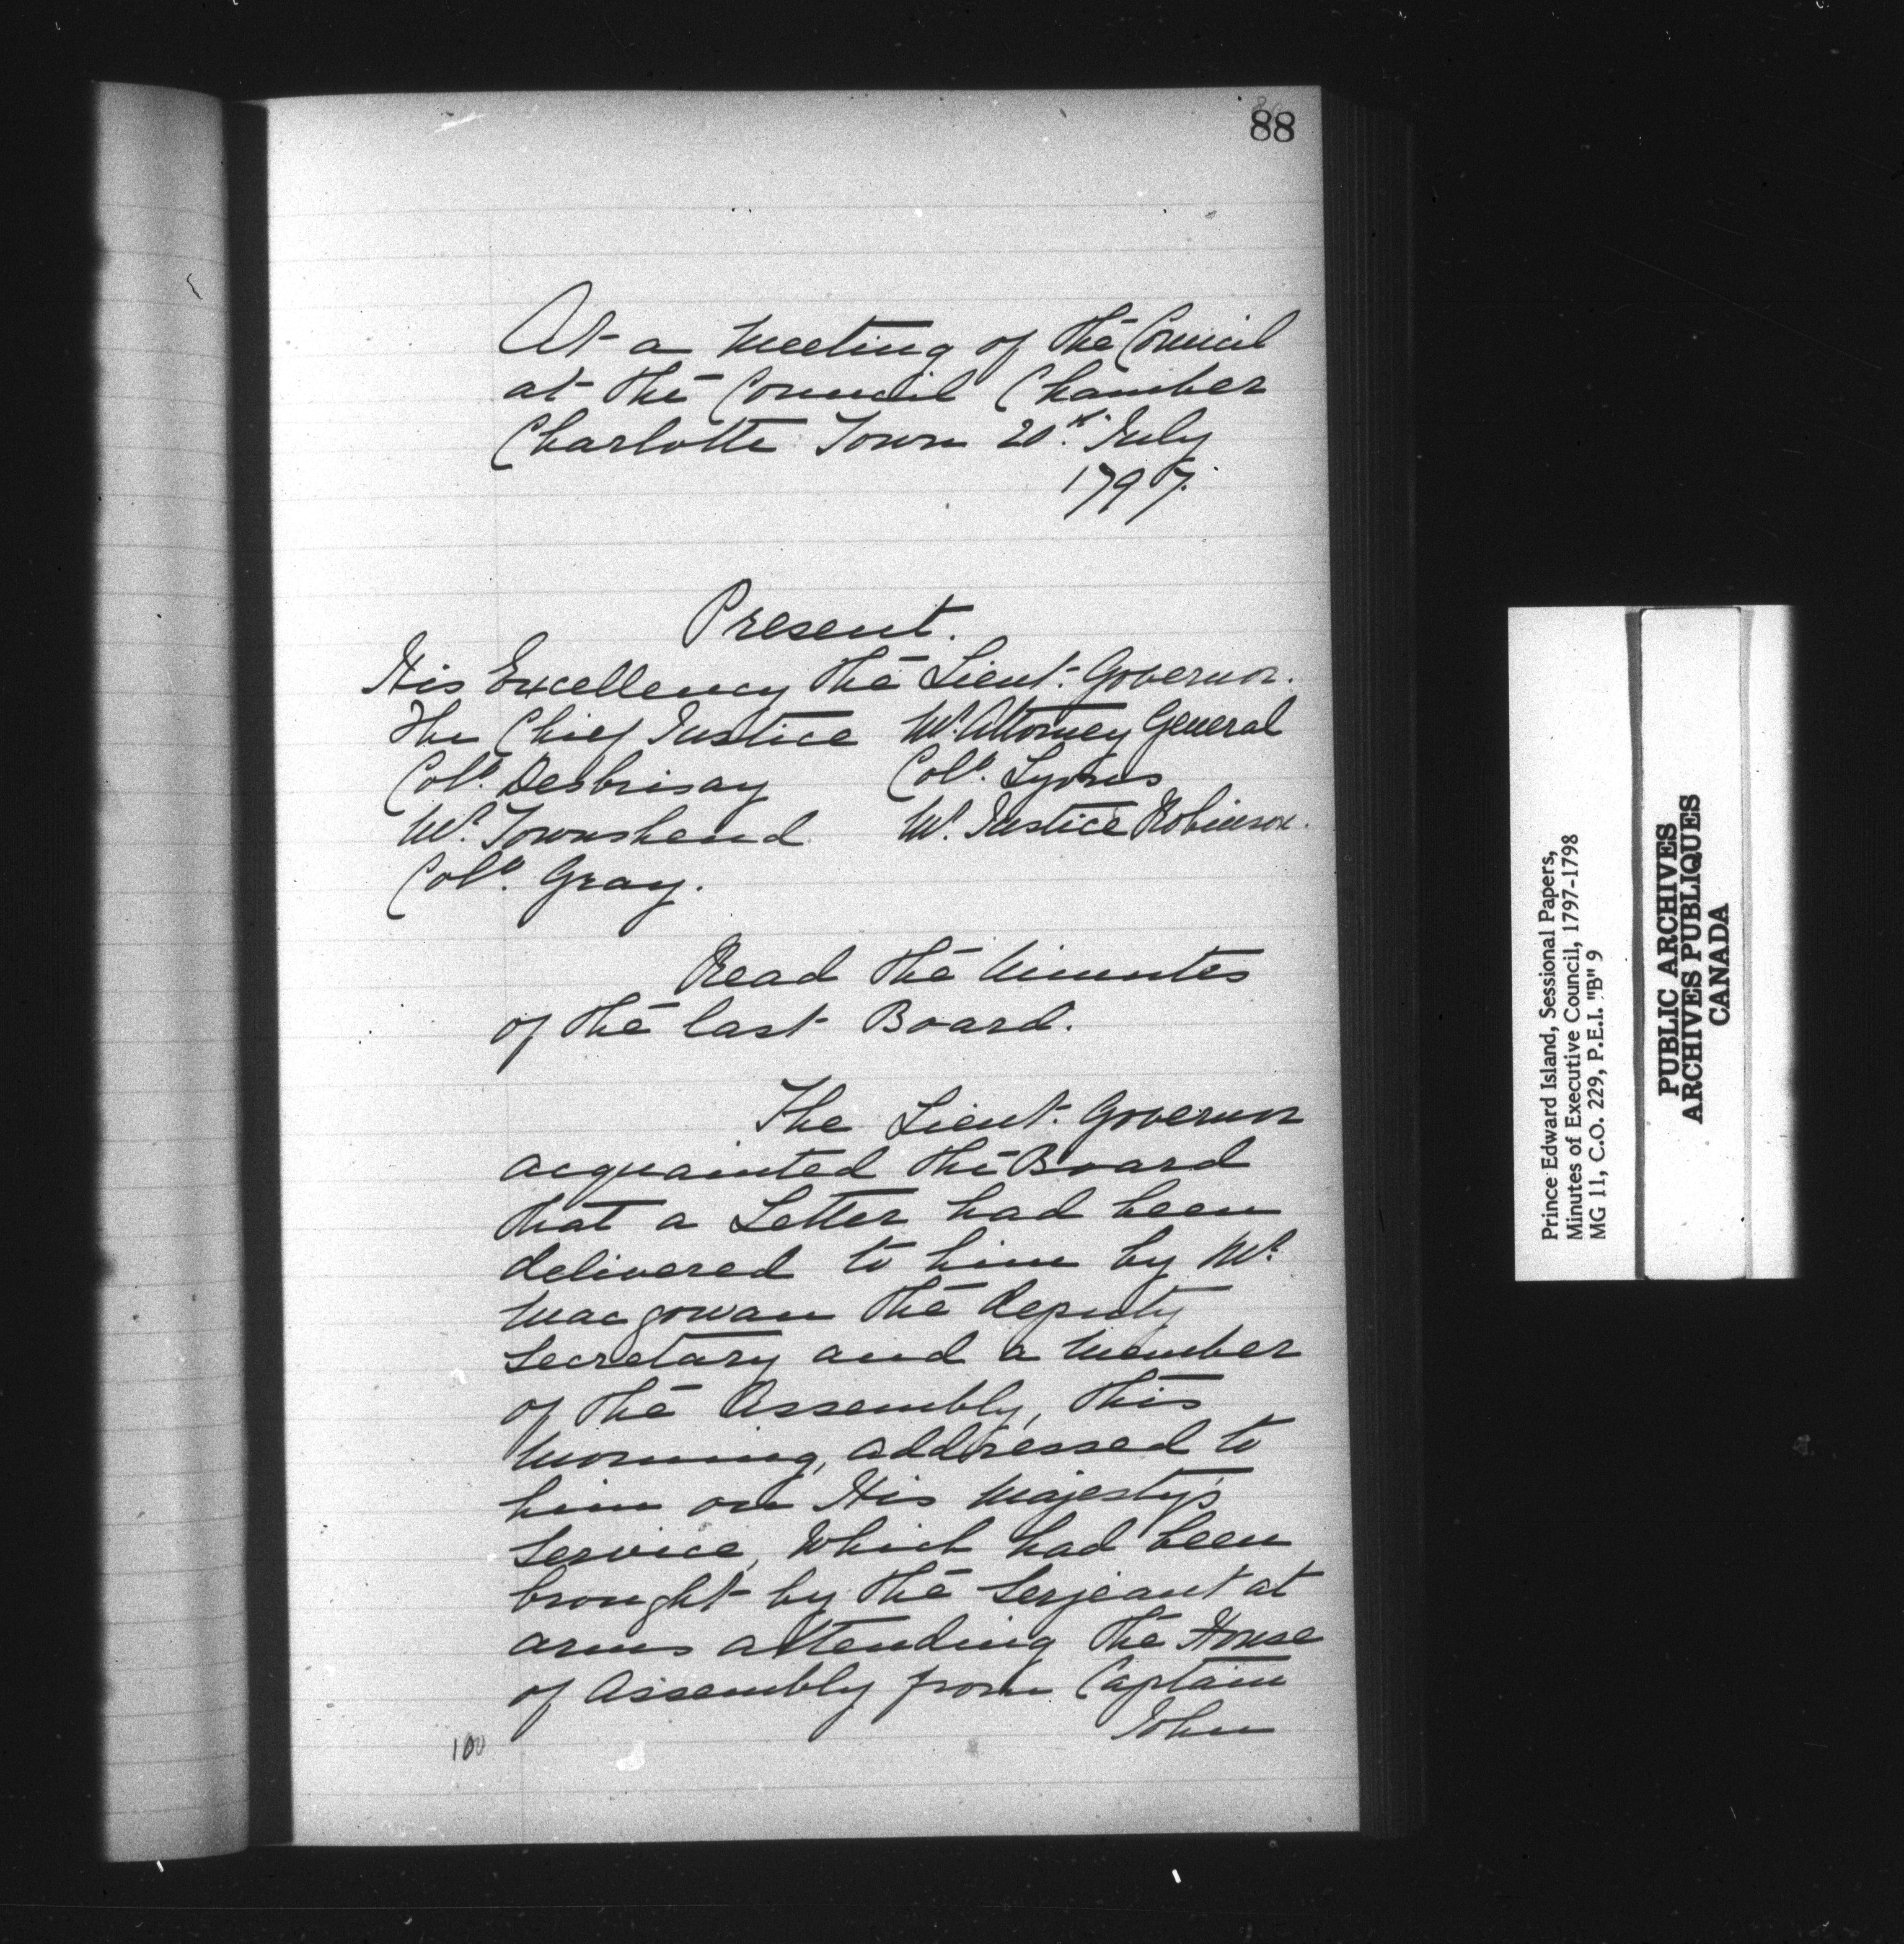 88
At a Meeting of the Council
at the Council Chamber
Charlotte Town 20th July
1797.
Present.
His Excellency the Lieut. Governor.
The Chief Justice Mr. Attorney General
Coll. Desbrisay Coll. Lyons
Mr. Townshend Mr. Justice Robinson.
Coll. Gray.
Read the Minutes
of the last Board.
The Lieut. Governor
acquainted the Board
that a Letter had been
delivered to him by Mr.
Macgowan the deputy
Secretary and a Member
of the Assembly, this
Morning, addressed to
him on His Majesty's
Service, Which had been
brought by the Serjeant at
arms attending the House
of Assembly from Captain
John
100
Prince Edward Island, Sessional Papers,
Minutes of Executive Council, 1797-1798
MG 11, C.O. 229, P.E.I. "B" 9
PUBLIC ARCHIVES
ARCHIVES PUBLIQUES
CANADA